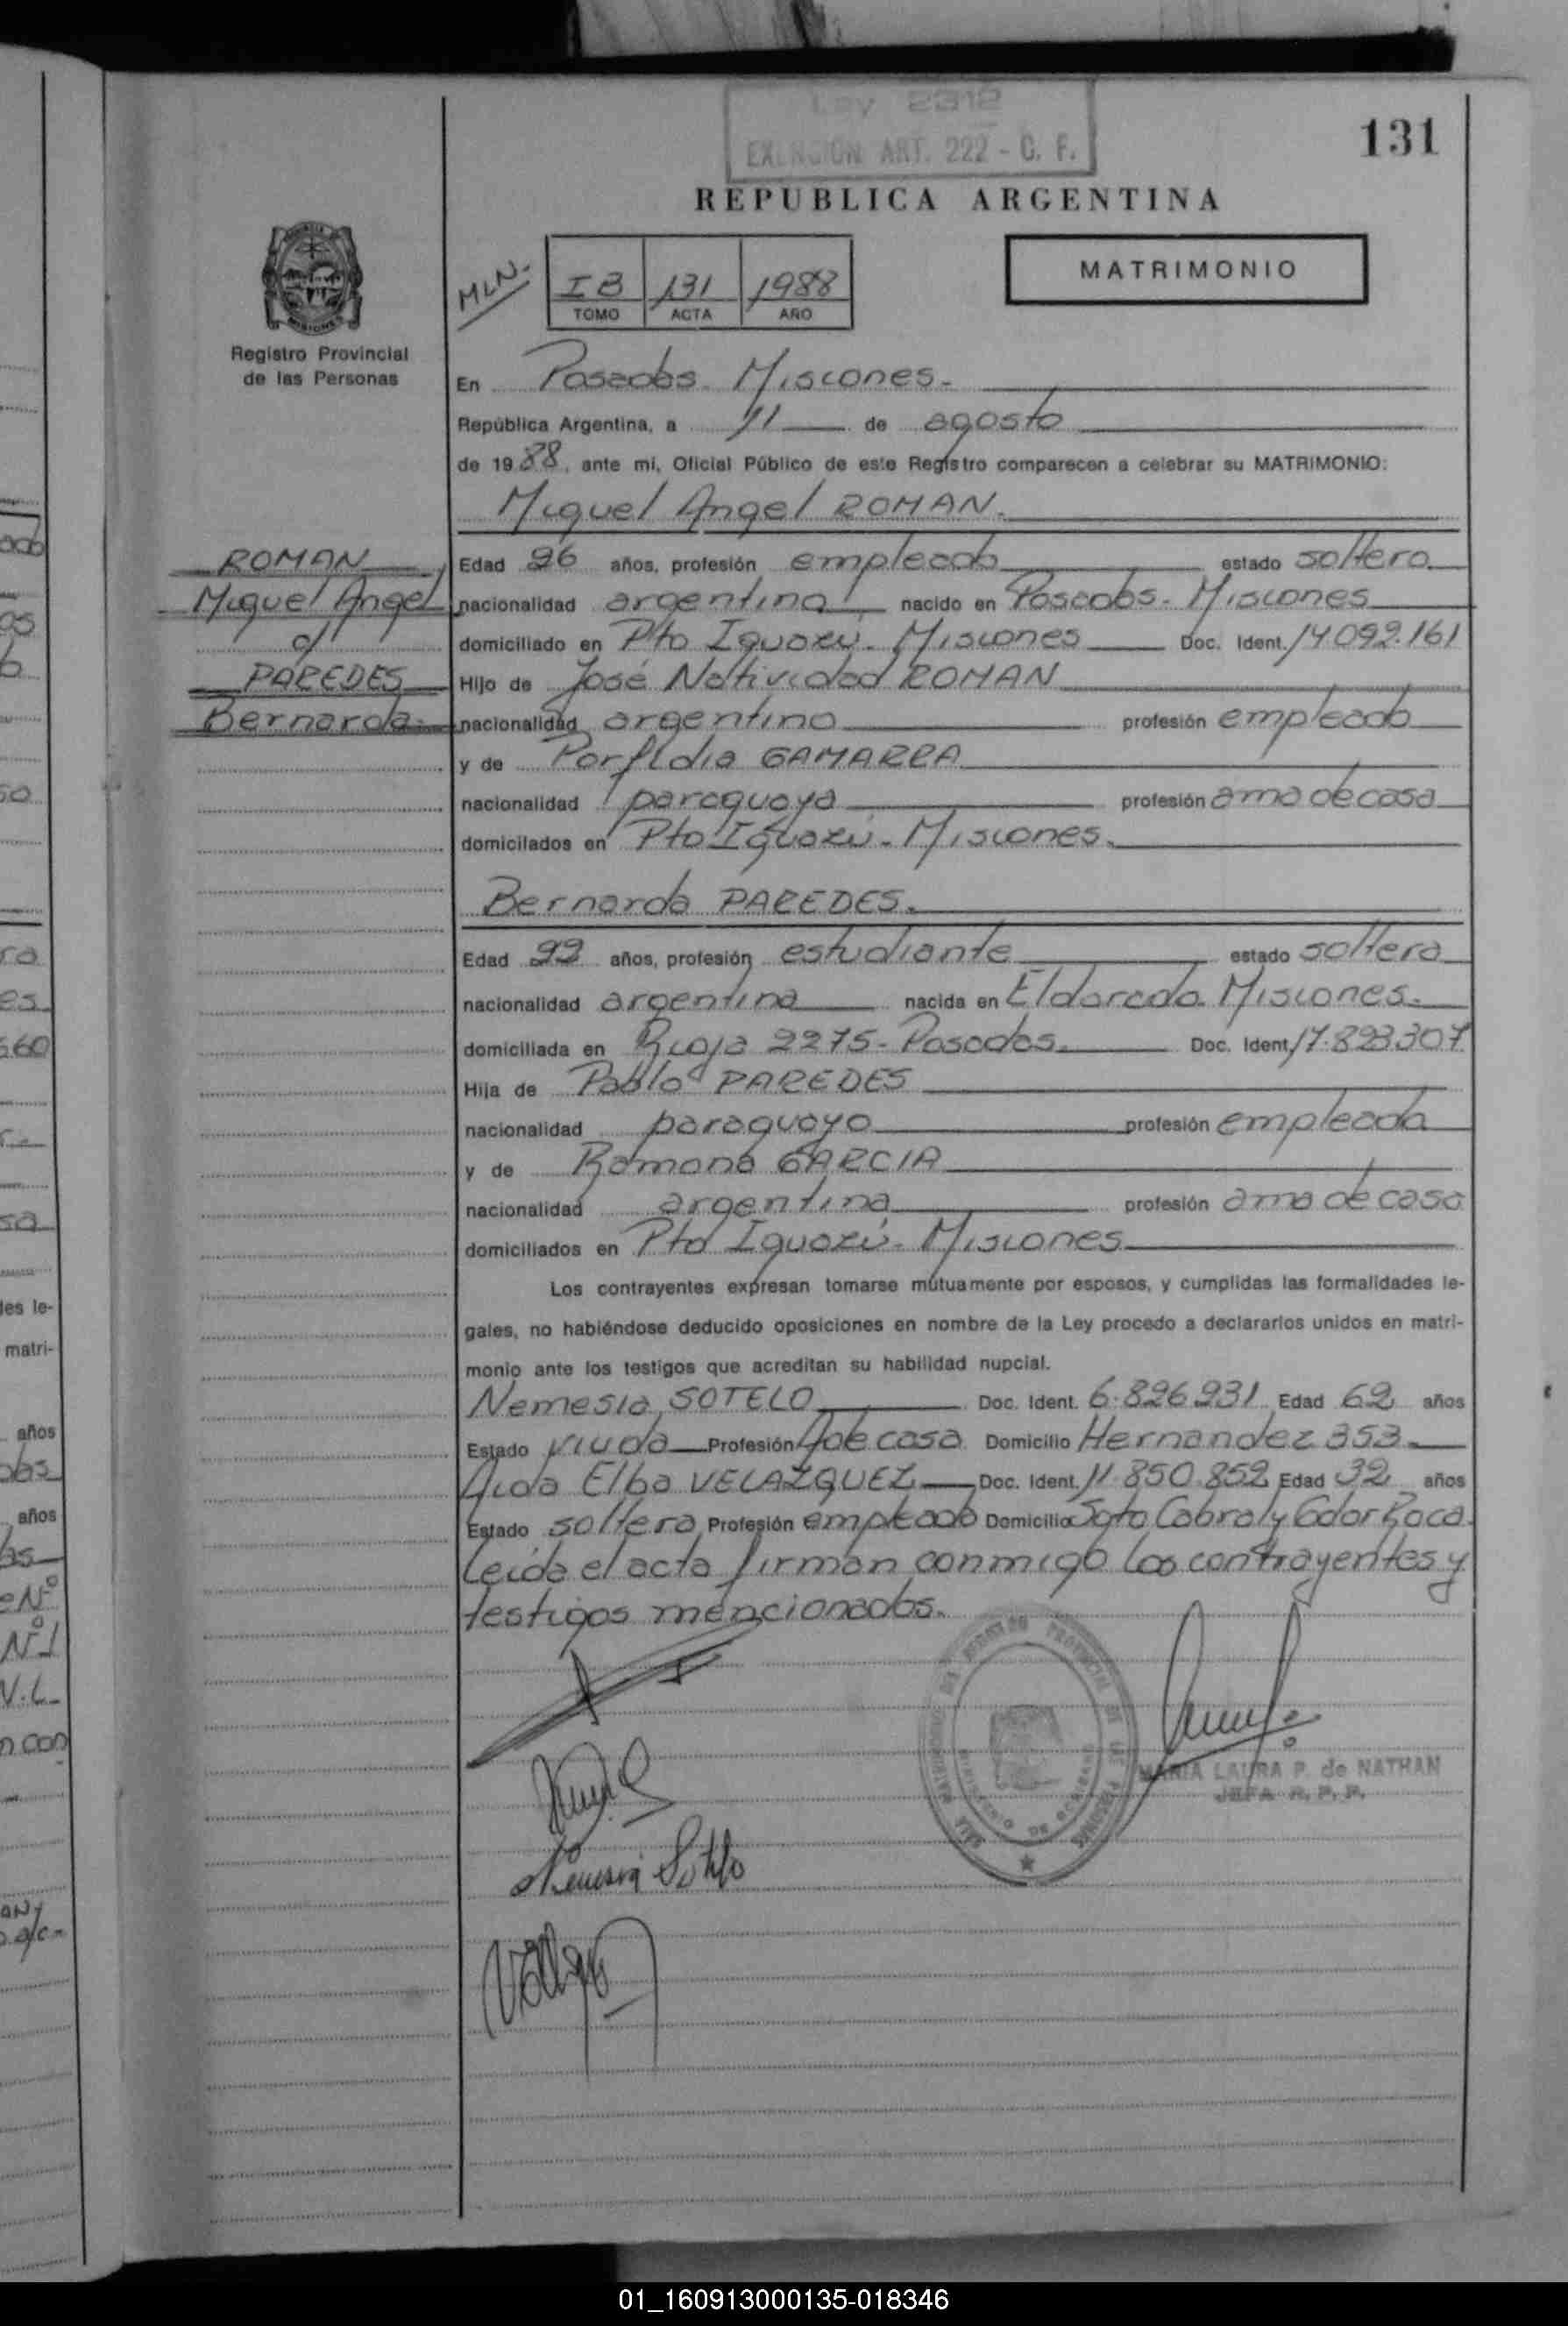 Ley 2312
EXENCION ART. 222 - C. F.
131
REPUBLICA ARGENTINA
MLN.
I B 131 1988
TOMO ACTA AÑO
MATRIMONIO
Registro Provincial
de las Personas
En Posadas Misiones.
República Argentina, a 11 de agosto
de 1988, ante mi, Oficial Público de este Registro comparecen a celebrar su MATRIMONIO:
Miguel Angel ROMAN.
ROMAN
Miguel Angel
c/
PAREDES
Bernarda
Edad 26 años, profesión empleado estado soltero
nacionalidad argentino nacido en Posadas - Misiones
domiciliado en Pto Iguazú - Misiones Doc. Ident. 14.092.161
Hijo de José Natividad ROMAN
nacionalidad argentino profesión empleado
y de Porfidia GAMARRA
nacionalidad paraguaya profesión ama de casa
domicilados en Pto Iguazú - Misiones.
Bernarda PAREDES.
Edad 22 años, profesión estudiante estado soltera
nacionalidad argentina nacida en Eldorado. Misiones.
domiciliada en Rioja 2275 - Posadas. Doc. Ident. 17.823.307
Hija de Pablo PAREDES
nacionalidad paraguayo profesión empleado
y de Ramona GARCIA
nacionalidad argentina profesión ama de casa
domiciliados en Pto Iguazú - Misiones
Los contrayentes expresan tomarse mútuamente por esposos, y cumplidas las formalidades le-
gales, no habiéndose deducido oposiciones en nombre de la Ley procedo a declararlos unidos en matri-
monio ante los testigos que acreditan su habilidad nupcial.
Nemesia SOTELO Doc. Ident. 6.826.931 Edad 62 años
Estado viuda Profesión A de casa Domicilio Hernandez 353.
Aida Elba VELAZQUEZ Doc. Ident. 11.850.852 Edad 32 años
Estado soltera Profesión empleada Domicilio Sgto Cabral y Gdor Roca.
Leida el acta firman conmigo los contrayentes y
testigos mencionados.
MARIA LAURA P. de NATHAN
JEFA R. P. P.
Nemesia Sotelo
01_160913000135-018346